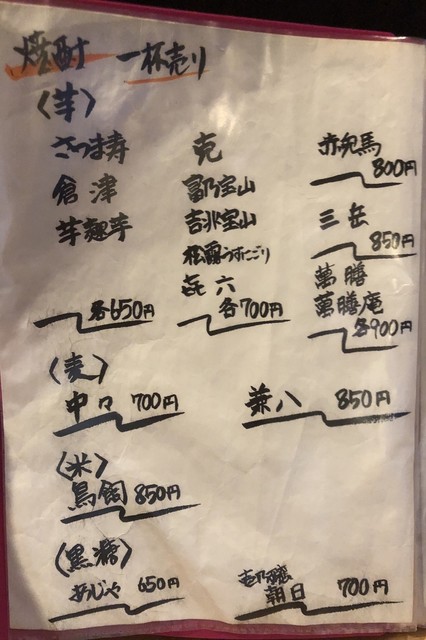 焼酎 一杯売り
〈芋〉
さつま寿
倉津
芋麹芋
各650円
克
富乃宝山
吉兆宝山
松露うすにごり
㐂六
各700円
赤兎馬
800円
三岳
850円
萬膳
萬膳庵
各900円
〈麦〉
中々 700円
兼八 850円
〈米〉
鳥飼 850円
〈黒糖〉
あじゃ 650円
壱乃醸
朝日 700円